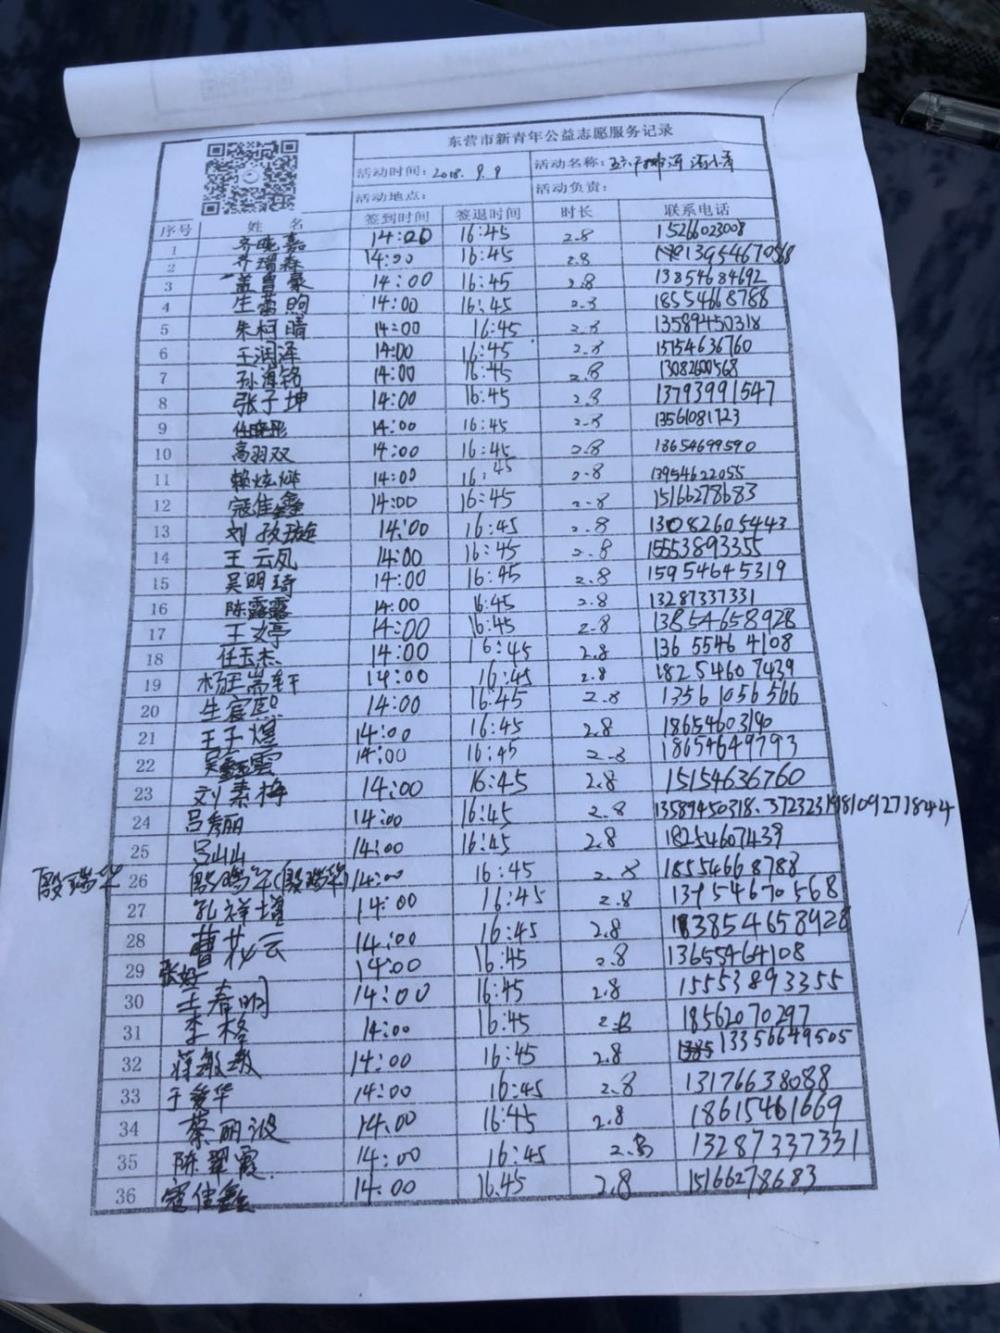 东营市新青年公益志愿服务记录
活动时间：2018.9.9 活动名称：
活动地点： 活动负责：
序号 姓 名 签到时间 签退时间 时长 联系电话
1 齐晓磊 14:00 16:45 2.8 15266023008
2 齐瑞森 14:00 16:45 2.8
3 盖冒豪 14:00 16:45 2.8 13854684692
4 生蕾煦 14:00 16:45 2.8 18554668788
5 朱柯晴 14:00 16:45 2.8 13589450318
6 王润泽 14:00 16:45 2.8 15154636760
7 孙海铭 14:00 16:45 2.8 13082600568
8 张子坤 14:00 16:45 2.8 13793991547
9 14:00 16:45 2.8 13561081723
10 高羽双 14:00 16:45 2.8 13654699590
11 赖炫烨 14:00 16:45 2.8 13954622055
12 寇佳鑫 14:00 16:45 2.8 15166278683
13 刘孜璇 14:00 16:45 2.8 13082605443
14 王云凤 14:00 16:45 2.8 15553893355
15 吴明琦 14:00 16:45 2.8 15954645319
16 陈露露 14:00 16:45 2.8 13287337331
17 王文亭 14:00 16:45 2.8 13854658928
18 任玉杰 14:00 16:45 2.8 13655464108
19 杨王嵩轩 14:00 16:45 2.8 18254607439
20 生宸熙 14:00 16:45 2.8 13561056566
21 王子煜 14:00 16:45 2.8 18654603190
22 14:00 16:45 2.8 18654649793
23 刘素梅 14:00 16:45 2.8 15154636760
24 吕秀丽 14:00 16:45 2.8 13589450318.372323198109271844
25 吕山山 14:00 16:45 2.8 18254607439
殷瑞华 26 (殷瑞华) 14:00 16:45 2.8 18554668788
27 孔祥增 14:00 16:45 2.8 13954670568
28 曹秋云 14:00 16:45 2.8 13854658928
29 张好 14:00 16:45 2.8 13655464108
30 王春明 14:00 16:45 2.8 15553893355
31 李格 14:00 16:45 2.8 18562070297
32 蒋敏敏 14:00 16:45 2.8 13356649505
33 于爱华 14:00 16:45 2.8 13176638088
34 蔡丽波 14:00 16:45 2.8 18615461669
35 陈翠霞 14:00 16:45 2.8 13287337331
36 寇佳鑫 14:00 16:45 2.8 15166278683